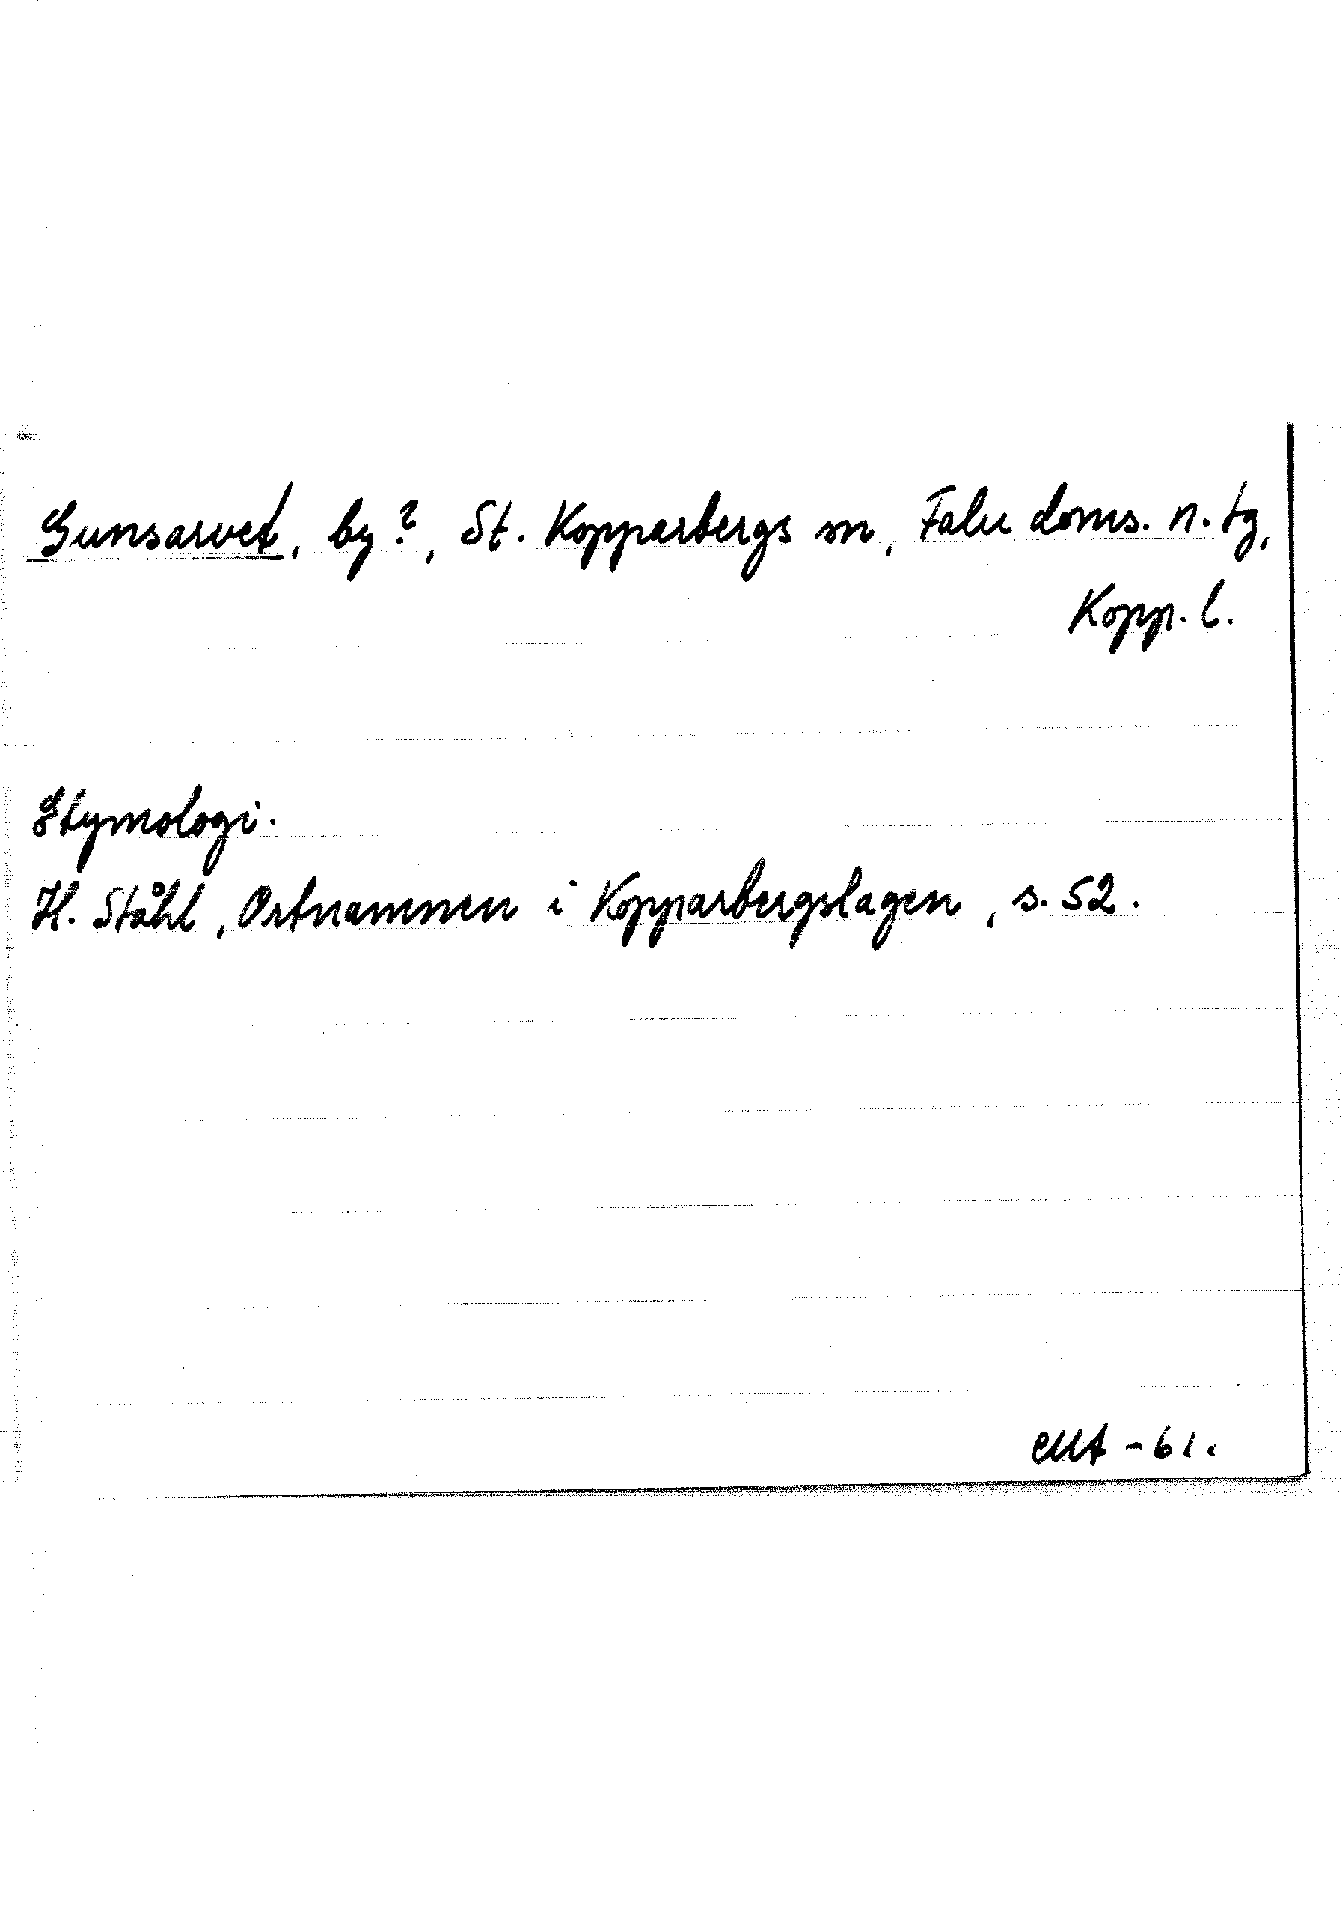 Gunsarvet, by?, St. Kopparbergs sn, Falu doms. n. tg,
Kopp. l.
Etymologi.
H. Ståhl, Ortnamnen i Kopparbergslagen, s. 52.
-61.